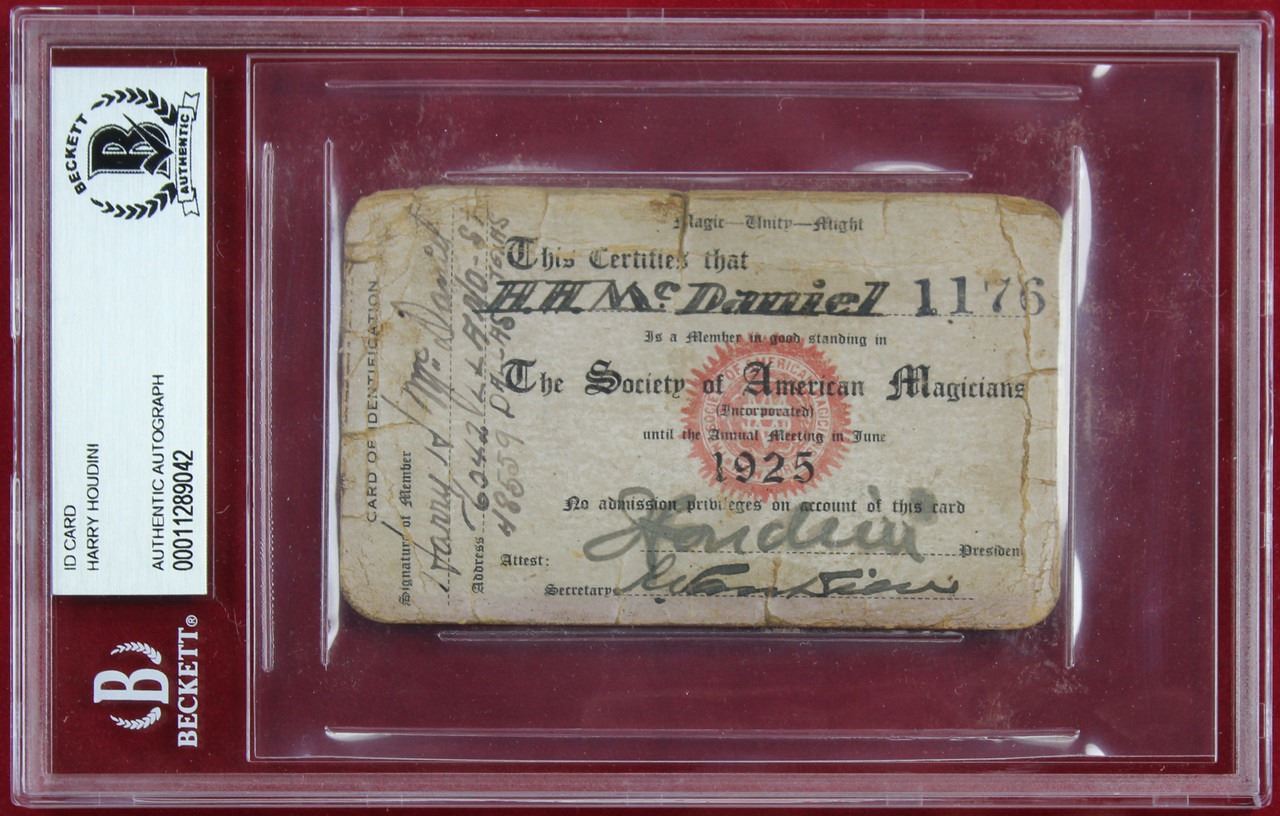 BECKETT
B
AUTHENTIC
ID CARD
HARRY HOUDINI
AUTHENTIC AUTOGRAPH
00011289042
B
BECKETT®
CARD OF IDENTIFICATION
Signature of Member
Harry H McDaniel
Address
Magic—Unity—Might
This Certifies that
H.H. McDaniel 1176
Is a Member in good standing in
The Society of American Magicians
(Incorporated)
until the Annual Meeting in June
1925
No admission privileges on account of this card
Houdini Presiden
Attest:
Secretary
SOCIETY OF AMERICAN MAGICIANS